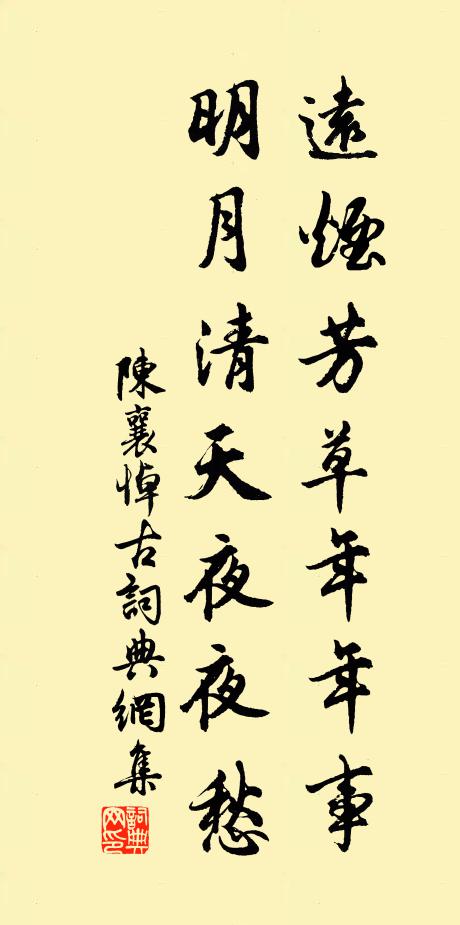 遠煙芳草年年事
明月清天夜夜愁
陳襄悼古詞典網集
詞典網印